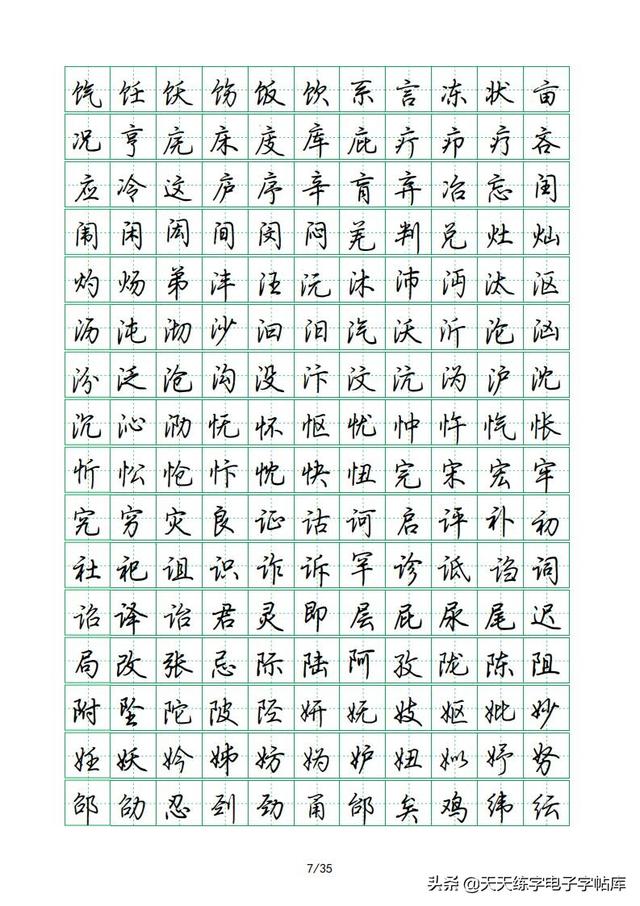 饩饪饫饬饭饮系言冻状亩
况亨庑床庋库庇疔疖疗吝
应冷这庐序辛肓弃冶忘闰
闱闲闳间闵闷羌判兑灶灿
灼炀弟沣汪沅沐沛沔汰沤
沥沌沏沙汩汨汽沃沂沦汹
汾泛沧沟没汴汶沆沩沪沈
沉沁泐怃怀怄忧忡忤忾怅
忻忪怆忭忱快忸完宋宏牢
究穷灾良证诂诃启评补初
社祀诅识诈诉罕诊诋诌词
诏译诒君灵即层屁尿尾迟
局改张忌际陆阿孜陇陈阻
附坠陀陂陉妍妩妓妪妣妙
妊妖妗姊妨妫妒妞姒妤努
邵劭忍刭劲甬邰矣鸡纬纭
7/35
头条 @天天练字电子字帖库